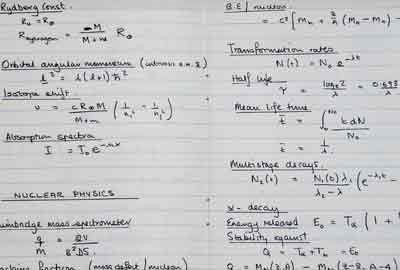 Rydberg Const.
R₀ = R∞
R hydrogen = M / M+m R∞
Orbital angular momentum
l² = l(l+1)ħ²
Isotope shift.
υ = cR∞M / M+m (1/n₁² - 1/n₂²)
Absorption spectra
I = I₀e
NUCLEAR PHYSICS
mass spectrometer
q/m =
fraction (mass defect / nucleon)
B.E / nucleon
= c² [Mn + Z/A (MH - Mn) -
Transformation rates
N(t) = N₀ e^-λt
Half life
τ = loge2 / λ = 0.693
Mean life time
t̄ = ∫ t dN / N₀
t̄ = 1/λ
Multistage decays.
N₂(t) = N₁(0)λ₁ / λ₂ - λ₁ (e^-λ₁t -
α - decay
Energy released E₀ = Tα (1 +
Stability against
Q = Tα + = E₀
Q = (Z,A) - (Z-2, A-4)